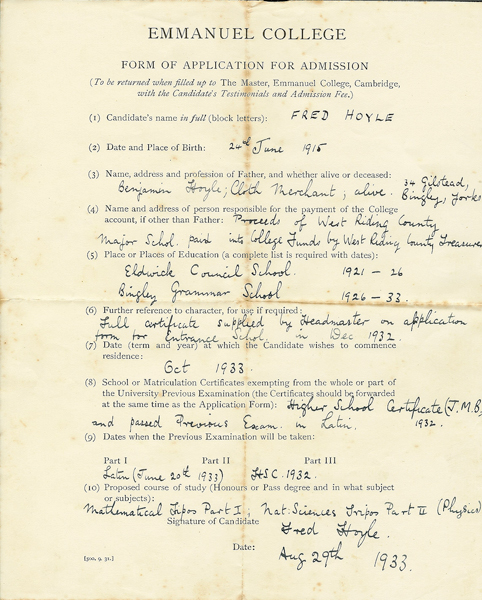 EMMANUEL COLLEGE
FORM OF APPLICATION FOR ADMISSION
(To be returned when filled up to The Master, Emmanuel College, Cambridge,
with the Candidate's Testimonials and Admission Fee.)
(1) Candidate's name in full (block letters): FRED HOYLE
(2) Date and Place of Birth: 24th June 1915
(3) Name, address and profession of Father, and whether alive or deceased:
Benjamin Hoyle; Cloth Merchant; alive. 34 Gilstead,
Bingley, Yorks
(4) Name and address of person responsible for the payment of the College
account, if other than Father: Proceeds of West Riding County
Major Schol. paid into College Funds by West Riding County Treasurer
(5) Place or Places of Education (a complete list is required with dates):
Eldwick Council School. 1921 - 26
Bingley Grammar School 1926 - 33.
(6) Further reference to character, for use if required:
Full certificate supplied by Headmaster on application
form for Entrance Schol. in Dec 1932.
(7) Date (term and year) at which the Candidate wishes to commence
residence:
Oct 1933.
(8) School or Matriculation Certificates exempting from the whole or part of
the University Previous Examination (the Certificates should be forwarded
at the same time as the Application Form): Higher School Certificate (J.M.B)
and passed Previous Exam. in Latin. 1932.
(9) Dates when the Previous Examination will be taken:
Part I Part II Part III
Latin (June 20th 1933) H.S.C. 1932.
(10) Proposed course of study (Honours or Pass degree and in what subject
or subjects):
Mathematical Tripos Part I; Nat: Sciences Tripos Part II (Physics)
Signature of Candidate
Fred Hoyle.
Date:
Aug 29th 1933.
[500, 9, 31.]